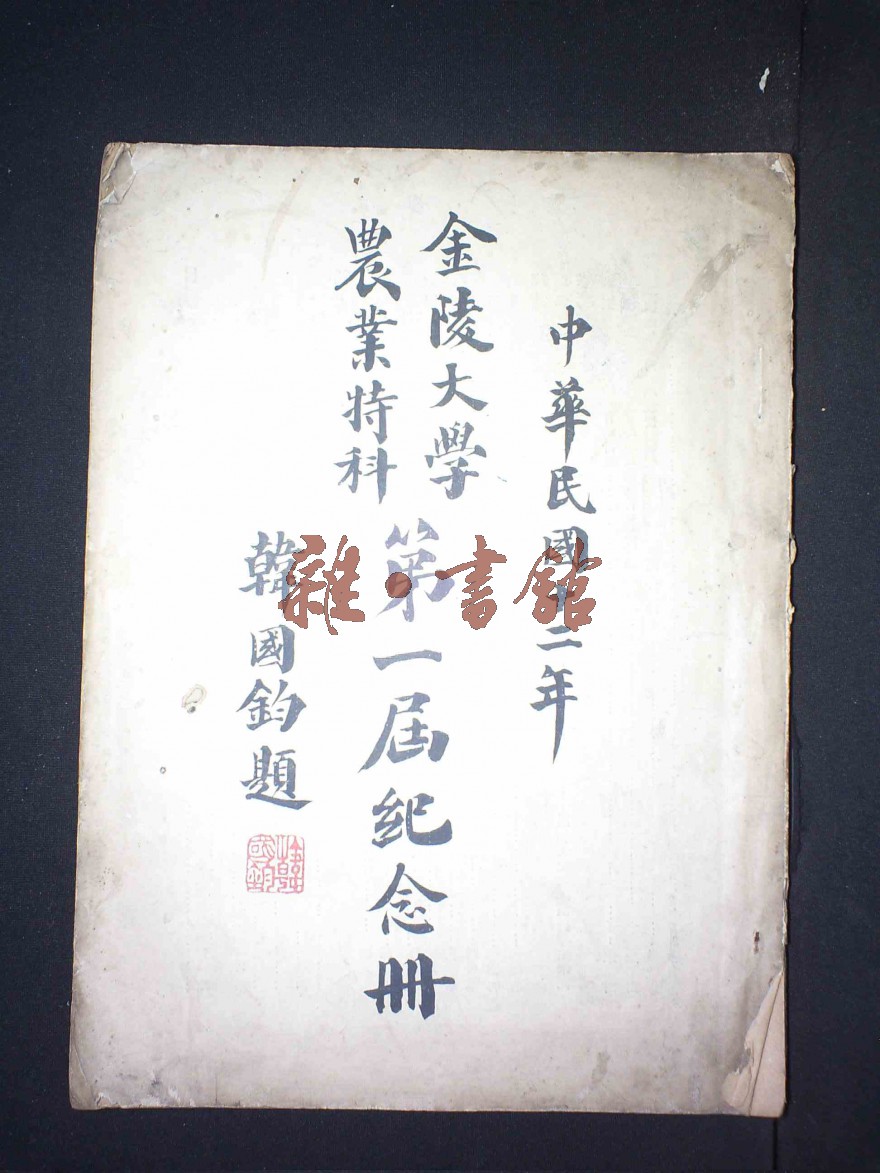 中華民國十二年
金陵大學
農業特科
第一屆紀念冊
韓國鈞題
韓國鈞
雜·書館